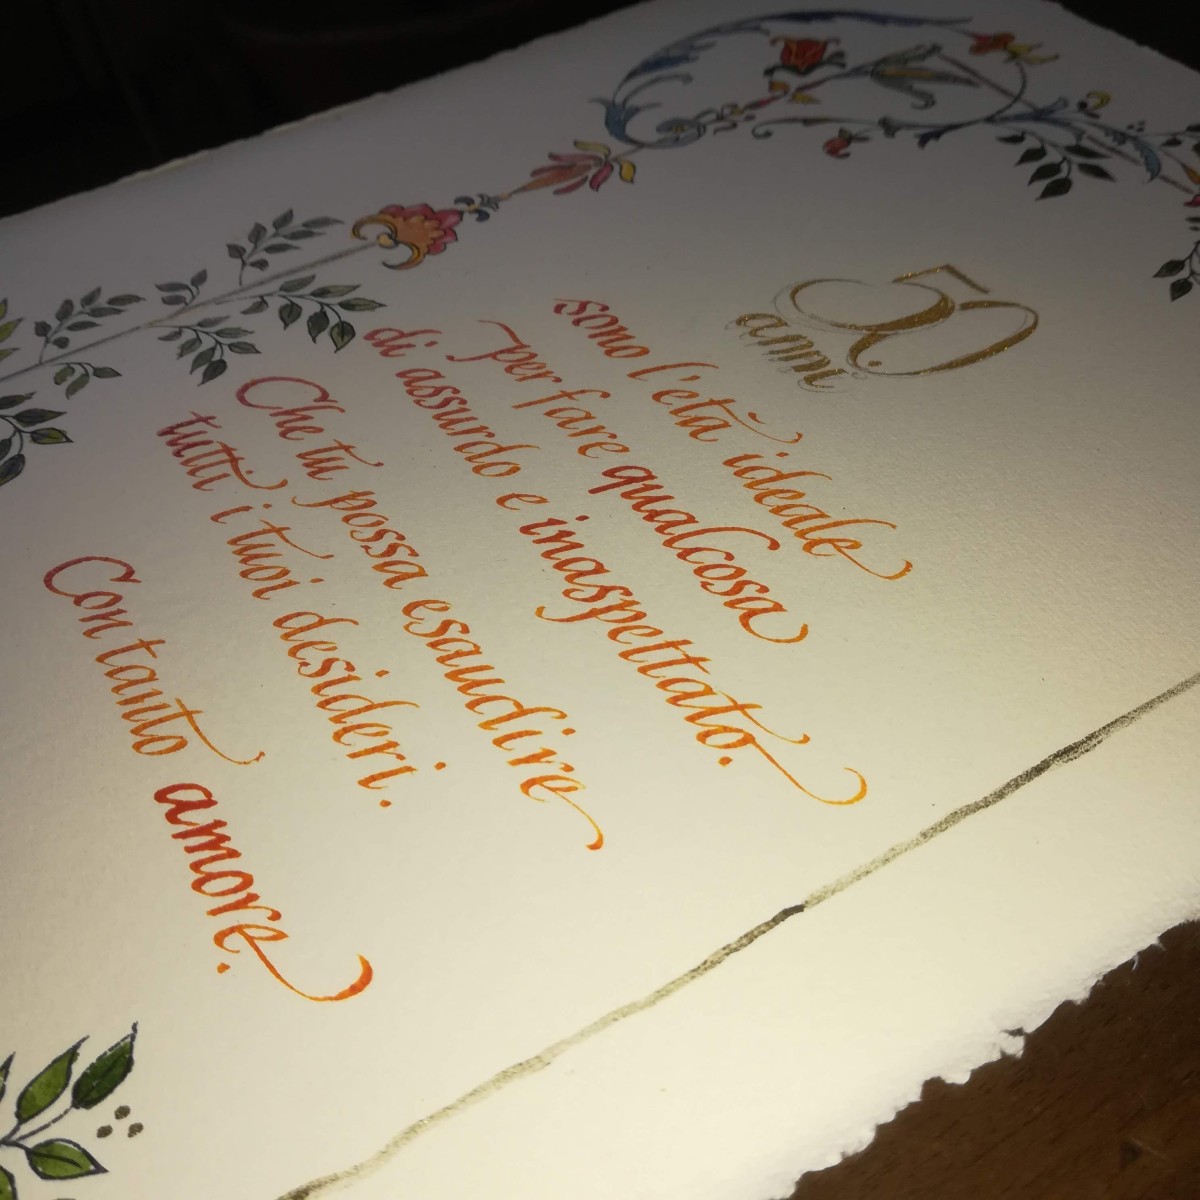 50
anni
sono l'età ideale
per fare qualcosa
di assurdo e inaspettato.
Che tu possa esaudire
tutti i tuoi desideri.
Con tanto amore.